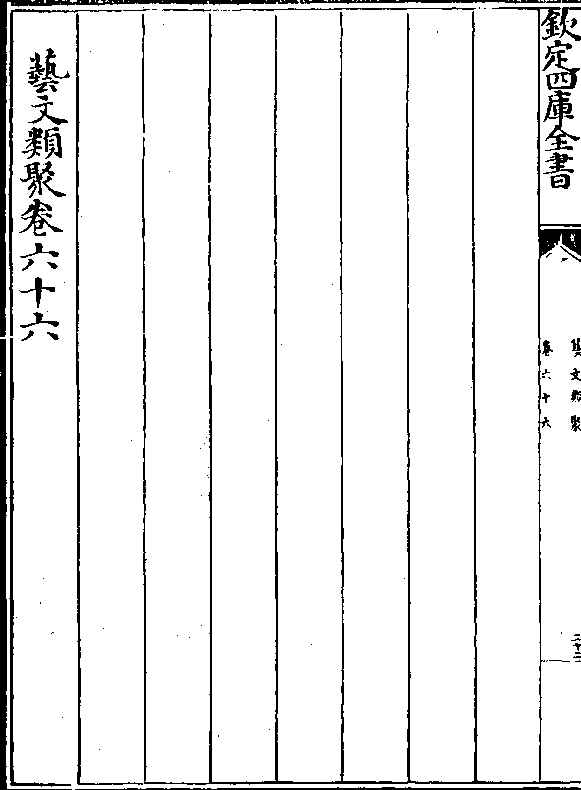 欽定四庫全書
藝文類聚
卷六十六
藝文類聚卷六十六